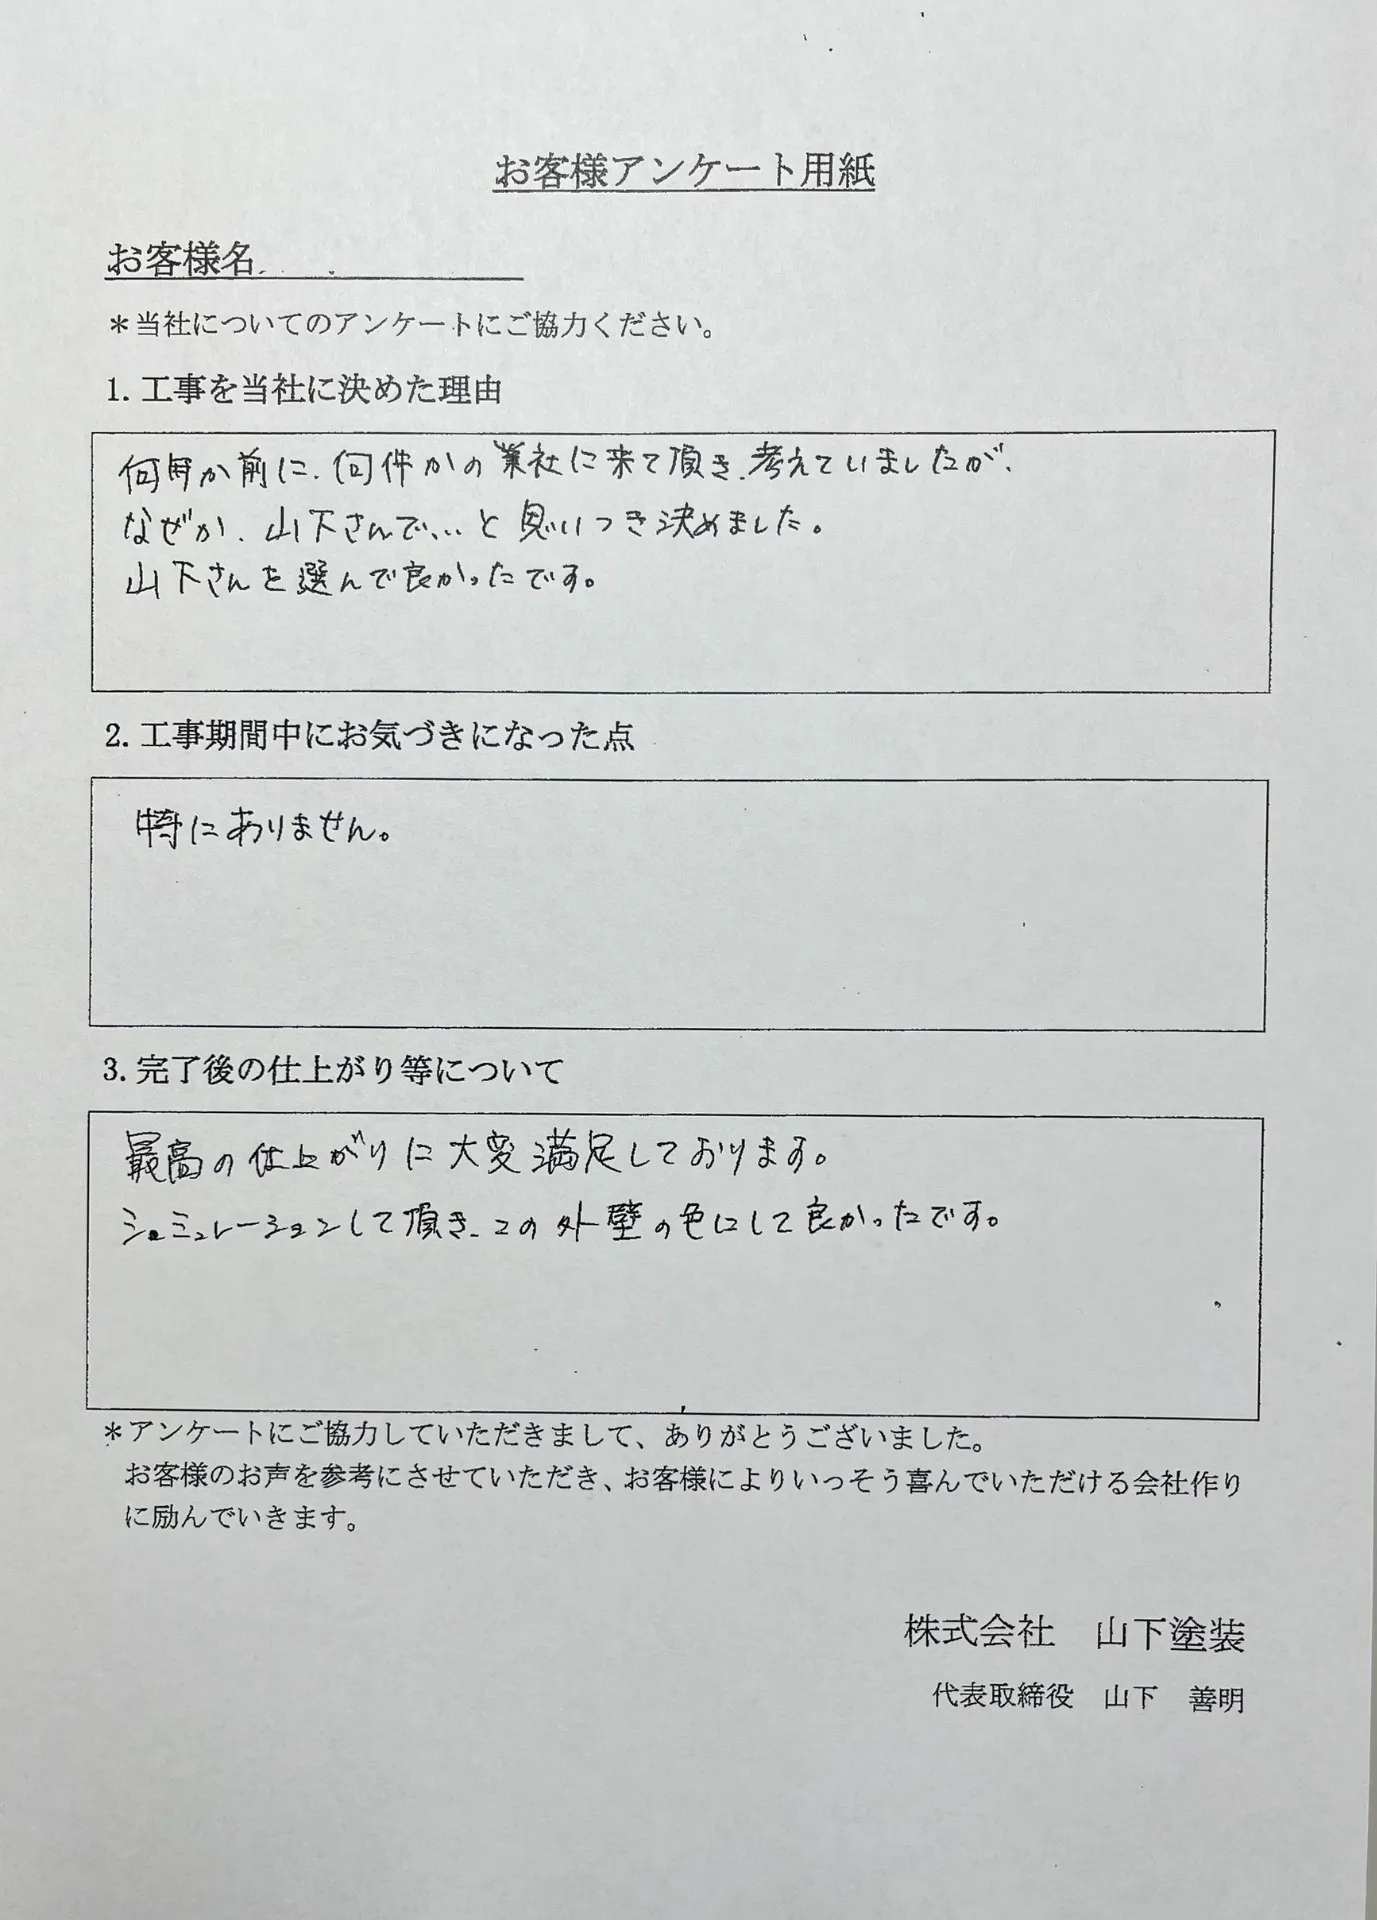 お客様アンケート用紙
お客様名
＊当社についてのアンケートにご協力ください。
1. 工事を当社に決めた理由
何年か前に、何件かの業社に来て頂き、考えていましたが、
なぜか、山下さんで、、、と思いつき決めました。
山下さんを選んで良かったです。
2. 工事期間中にお気づきになった点
特にありません。
3. 完了後の仕上がり等について
最高の仕上がりに大変満足しております。
シュミュレーションして頂き、この外壁の色にして良かったです。
＊アンケートにご協力していただきまして、ありがとうございました。
お客様のお声を参考にさせていただき、お客様によりいっそう喜んでいただける会社作り
に励んでいきます。
株式会社　山下塗装
代表取締役　山下　善明